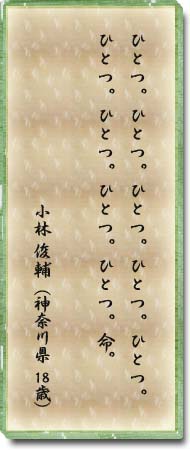 ひとつ。ひとつ。ひとつ。ひとつ。ひとつ。
ひとつ。ひとつ。ひとつ。ひとつ。命。
小林 俊輔（神奈川県 18歳）